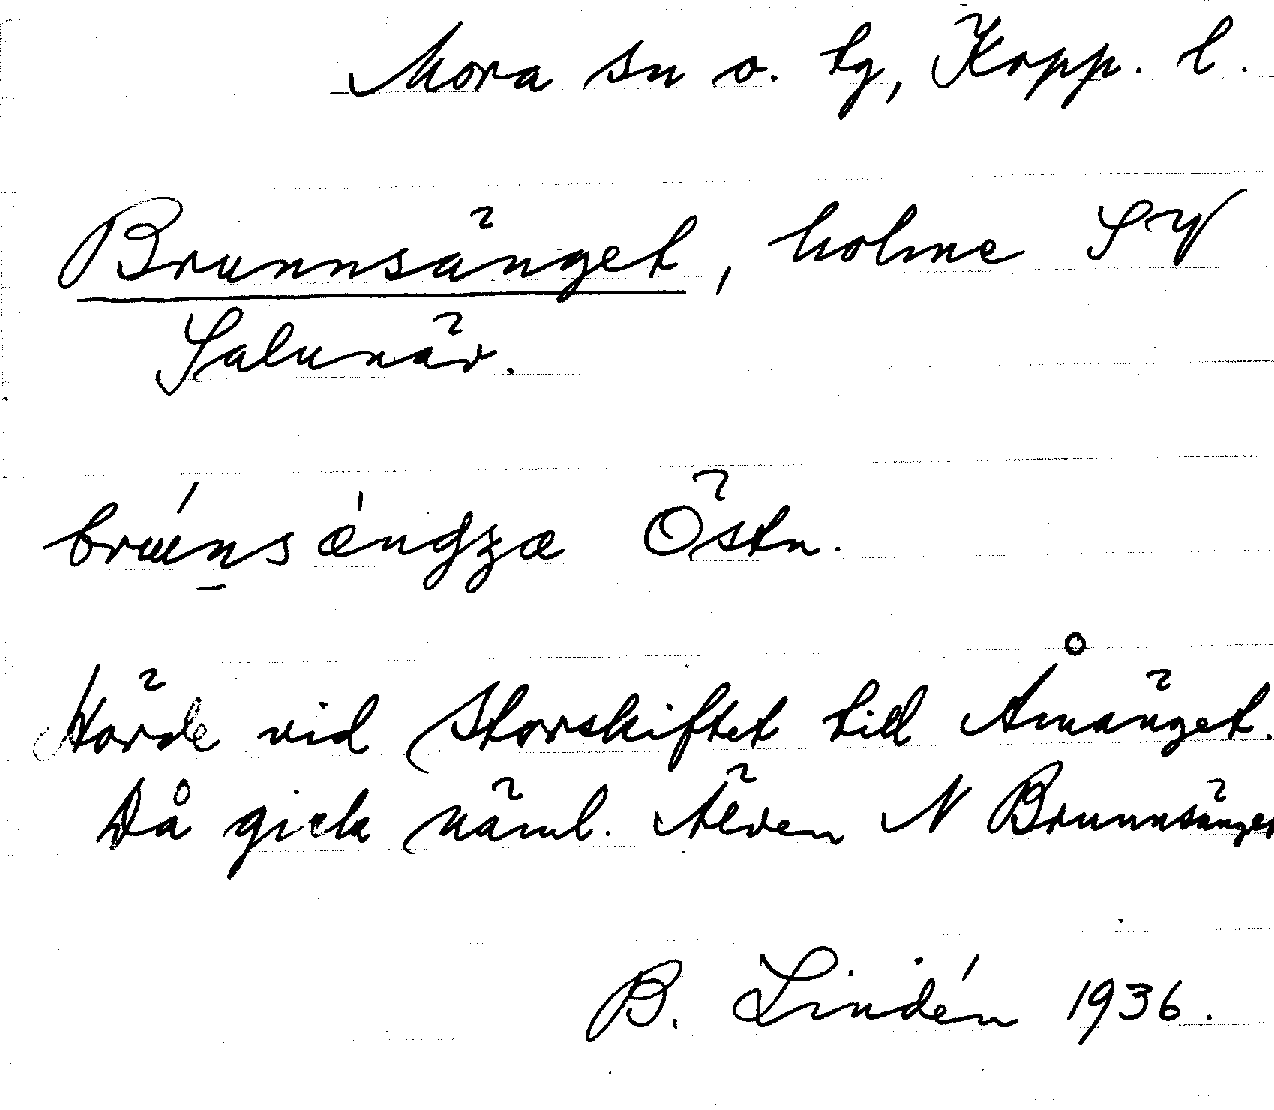 Mora sn o. tg, Kopp. l.
Brunnsänget, holme SV
Salunär.
Östn.
Hörde vid Storskiftet till Åmänget.
Då gick näml. Älven N Brunnsänget
B. Lindén 1936.